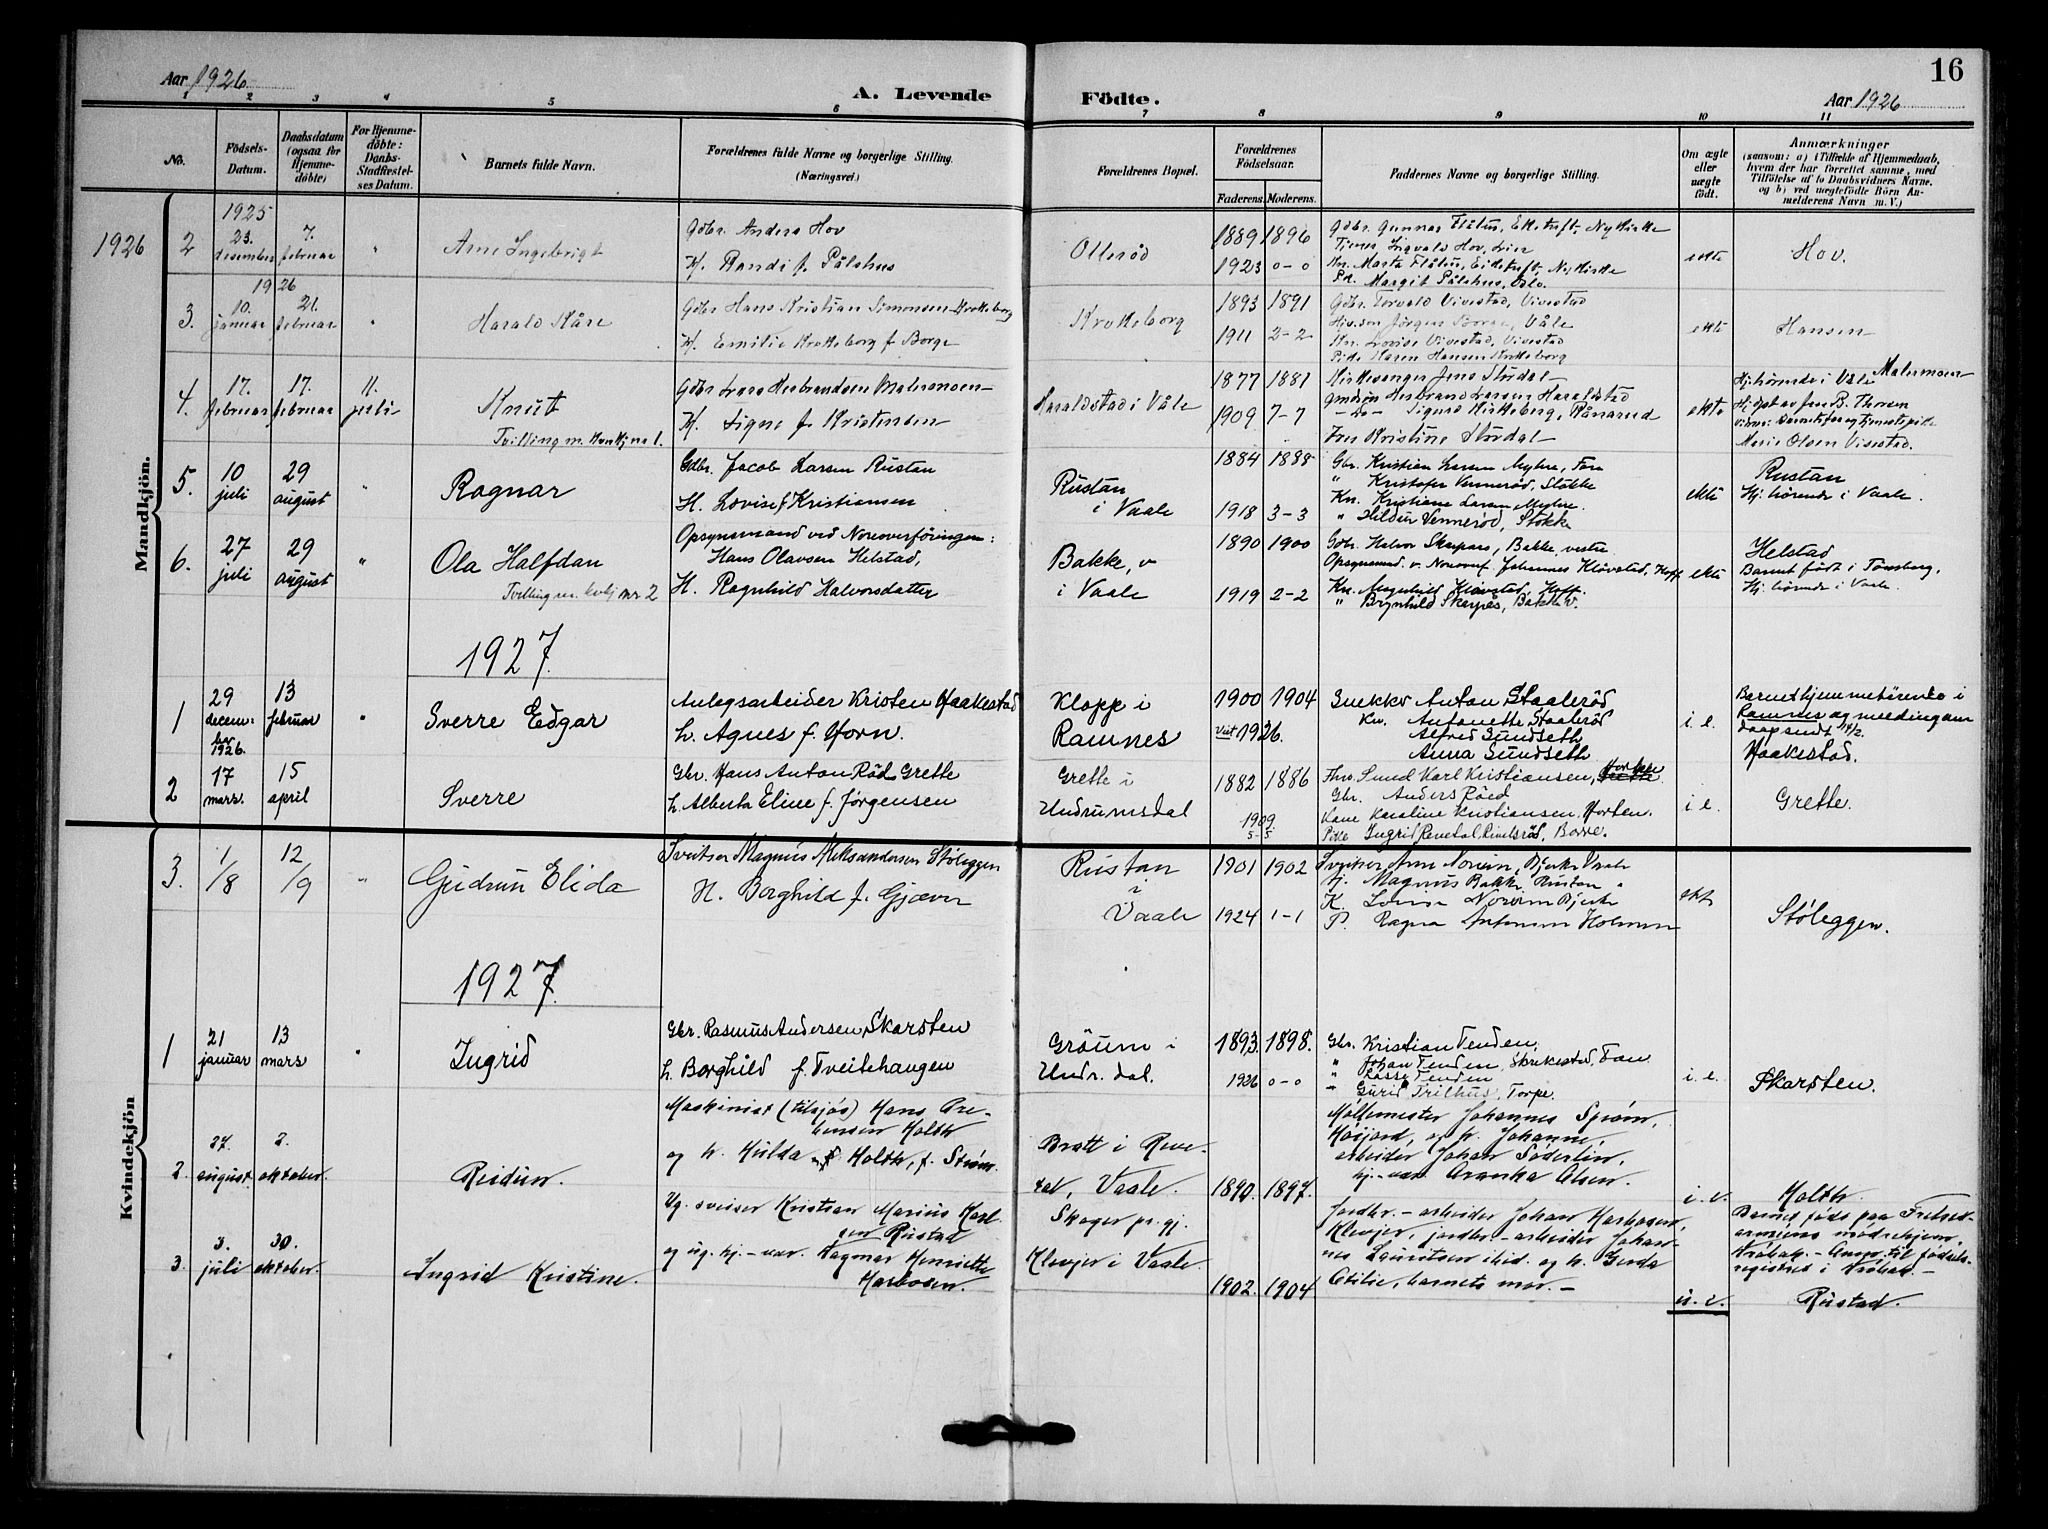 16
Aar 1926
A. Levende Födte.
Aar 1926
1 2 3 4 5 6 7 8 9 10 11
No.
Födsels-Datum.
Daabsdatum (ogsaa for Hjemme-döbte)
For Hjemme-döbte: Daabs-Stadfæstel-ses Datum.
Barnets fulde Navn.
Forældrenes fulde Navne og borgerlige Stilling. (Næringsvei.)
Forældrenes Bopæl.
Forældrenes Födselsaar.
Faderens. Moderens.
Faddernes Navne og borgerlige Stilling.
Om ægte eller uægte födt.
Anmærkninger
(saasom: a) i Tilfælde af Hjemmedaab,
hvem der har forrettet samme, med
Tilföielse af to Daabsvidners Navne.
og b) ved uægtefödte Börn An-
melderens Navn m. V.)
Mandkjön.
1926
2 1925 23. desember 7. februar " Arne Ingebrigt
Gdbr. Anders Hov
H. Randi f. Pålshus
Ollerød
1889 1896
1923 0-0
Gdbr. Gunnar Flåtus, Eiketuft, Nykirke
Sigvald Hov, Lier
Kn. Marta Flåtus, Eiketuft, Nykirke
Pk. Margit Pålshus, Oslo.
ekte
Hov.
1926
3. 10. januar 21. februar " Harald Kåre
Gdbr Hans Kristian Simonsen Krokeborg
H. Emilie Krokeborg f Borge
Krokeborg
1893 1891
1911 2-2
Gdbr Torvald Vivestad, Vivestad
Jörgen Borge, Våle
Kn. Lovise Vivestad, Vivestad
Pike Karen Hansen Krokeborg
ekte
Hansen
4. 17. februar 17. februar 11. juli Knut
Tvilling m.
Gdbr Lars Hesbrandsen
H. Signe f. Kristensen
Haraldstad i Våle
1877 1881
1909 7-7
Kirkesanger Jens Stördal
Hesbrand Larsen Haraldstad
-do- Sigurd Kirkeberg, Rånerud
Fru Kristine Stördal
ekte
Hj. hörende i Våle
Hj. döpt av fru B. Thoren
Marie Olsen Vivestad.
5. 10 juli 29 august " Ragnar
Gdbr. Jacob Larsen Rustan
H. Lovise f Kristiansen
Rustan
i Vaale
1884 1888
1918 3-3
Gbr. Kristian Larsen Myhre,
" Kristofer Vennerød, Stokke
Kn. Kristiane Larsen Myhre.
" Hildur Vennerød, Stokke
ekte
Rustan
Hj. hörende i Vaale.
6. 27 juli 29 august " Ola Halfdan
Tvilling m. kvkj nr 2
Opsynsmand ved Noreoverföringen:
Hans Olavsen Helstad,
H. Ragnhild Halvorsdatter
Bakke, v
i Vaale
1890 1900
1919 2-2
Gdbr. Halvor Skarpaas, Bakke, vestre
Opsynsmd. v. Noreovf. Johannes Kløvstad, Hoff
Kn. Magnhild Kløvstad, Hoff.
" Brynhild Skarpås, Bakke v.
ekte
Helstad
Barnet födt i Tønsberg,
Hj. hörende i Vaale.
1927
1 29 december 1926. 13 februar " Sverre Edgar
Anlegsarbeider Kristen Haakestad
h. Agnes f. Horn.
Klopp i
Ramnes
1900 1904
viet 1926.
Snekker Anton Staalerød
Kn. Antonette Staalerød
Alfred Sundseth
Anna Sundseth
i. e.
Barnet hjemmehörende i
Ramnes og melding om
daap sendt 14/2
Haakestad.
2 17 mars. 15 april Sverre
Gbr. Hans Anton Röd Grette
h. Alberta Eline f. Jørgensen
Grette i
Undrumsdal
1882 1886
1909. 5-5
Karl Kristiansen, Horten
Gbr. Anders Röed
Kone Karoline Kristiansen, Horten.
Pike Ingrid Revetal, Borre.
i. e.
Grette.
Kvindekjön
3. 1/8 12/9 " Gudrun Elida
Sveitser Magnus Aleksandersen Støleggen
H. Borghild f. Gjæver
Rustan
i
Vaale
1901 1902
1924 1-1
Sveitser Arne Noreim, Bjerke Vaale
Hj. Magnus Bakke, Rustan "
K. Lovise Noreim Bjerke
P. Ragna Antonsen Holmen
ekt
Støleggen.
1927
1 21 januar 13 mars " Ingrid
Gbr. Rasmus Andersen Skarsten
h. Borghild f. Tveitehaugen
Gröum i
Undr. dal.
1893. 1898.
1926 0-0
Gbr. Kristian Tenden,
" Johan Tenden Skrikestad, Fon
" Lasse Tenden
" Gurid Trilhus, Torpe.
i. e.
Skarsten.
2. 27. august. 2. oktober. Reidun.
Maskinist (tilsjös) Hans Pre-
bensen Holth
og h. Hulda Holth, f. Strøm.
Bratt i Reve-
tal, Vaale.
1890. 1897.
Møllemester Johannes Strøm,
Høijord, og h. Johanne,
arbeider Johan Söderlin,
hj.-vær. Aranka Olsen.
i. e.
Holth.
3. 3. juli 30. oktober. Ingrid Kristine.
Ug. sveiser Kristian Marius Karl-
sen Rustad
og ug. hj.-vær. Dagmar Henriette
Harbosen.
Skoger pr. gj.
Klevjer i Vaale.
1902. 1904
Jordbr.-arbeider Johan Harbosen,
Klevjer, jordbr-arbeider Johan-
nes Lauritsen ibid. og h. Gerda
Otilie, barnets mor. —
u. e.
Barnet födt paa Frelses-
armeens mödrehjem,
Rustad.